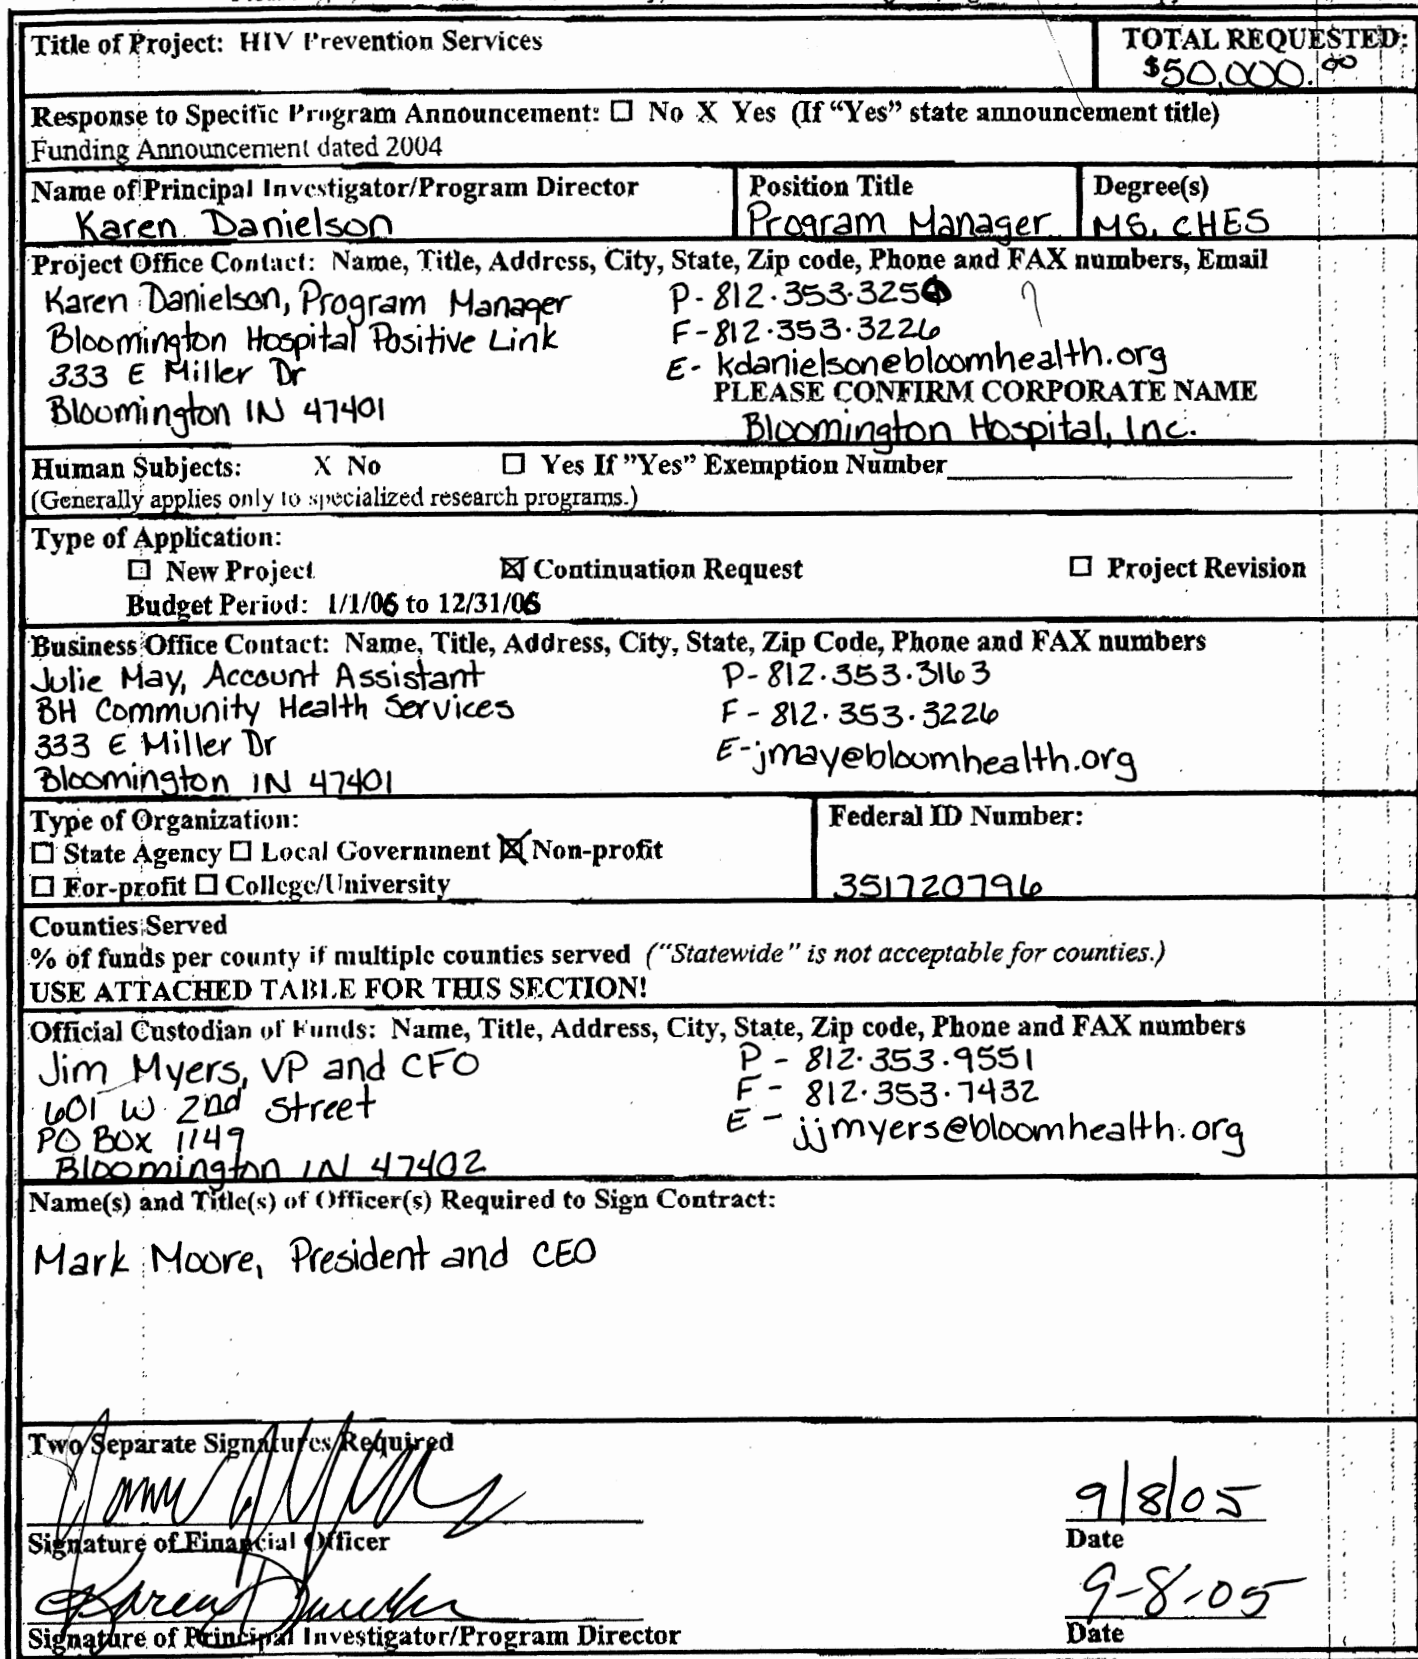 Title of Project: HIV Prevention Services
TOTAL REQUESTED:
$50,000.00
Response to Specific Program Announcement: ☐ No X Yes (If "Yes" state announcement title)
Funding Announcement dated 2004
Name of Principal Investigator/Program Director
Karen Danielson
Position Title
Program Manager
Degree(s)
MS, CHES
Project Office Contact: Name, Title, Address, City, State, Zip code, Phone and FAX numbers, Email
Karen Danielson, Program Manager
Bloomington Hospital Positive Link
333 E Miller Dr
Bloomington IN 47401
P- 812.353.3250
F- 812.353.3226
E- kdanielson@bloomhealth.org
PLEASE CONFIRM CORPORATE NAME
Bloomington Hospital, Inc.
Human Subjects: X No ☐ Yes If "Yes" Exemption Number
(Generally applies only to specialized research programs.)
Type of Application:
☐ New Project ☒ Continuation Request ☐ Project Revision
Budget Period: 1/1/06 to 12/31/06
Business Office Contact: Name, Title, Address, City, State, Zip Code, Phone and FAX numbers
Julie May, Account Assistant
BH Community Health Services
333 E Miller Dr
Bloomington IN 47401
P- 812.353.3163
F- 812.353.3226
E- jmay@bloomhealth.org
Type of Organization:
☐ State Agency ☐ Local Government ☒ Non-profit
☐ For-profit ☐ College/University
Federal ID Number:
351720796
Counties Served
% of funds per county if multiple counties served ("Statewide" is not acceptable for counties.)
USE ATTACHED TABLE FOR THIS SECTION!
Official Custodian of Funds: Name, Title, Address, City, State, Zip code, Phone and FAX numbers
Jim Myers, VP and CFO
601 W 2nd Street
PO Box 1149
Bloomington IN 47402
P - 812.353.9551
F - 812.353.7432
E - jjmyers@bloomhealth.org
Name(s) and Title(s) of Officer(s) Required to Sign Contract:
Mark Moore, President and CEO
Two Separate Signatures Required
9/8/05
Signature of Financial Officer
Date
Karen
9-8-05
Signature of Principal Investigator/Program Director
Date